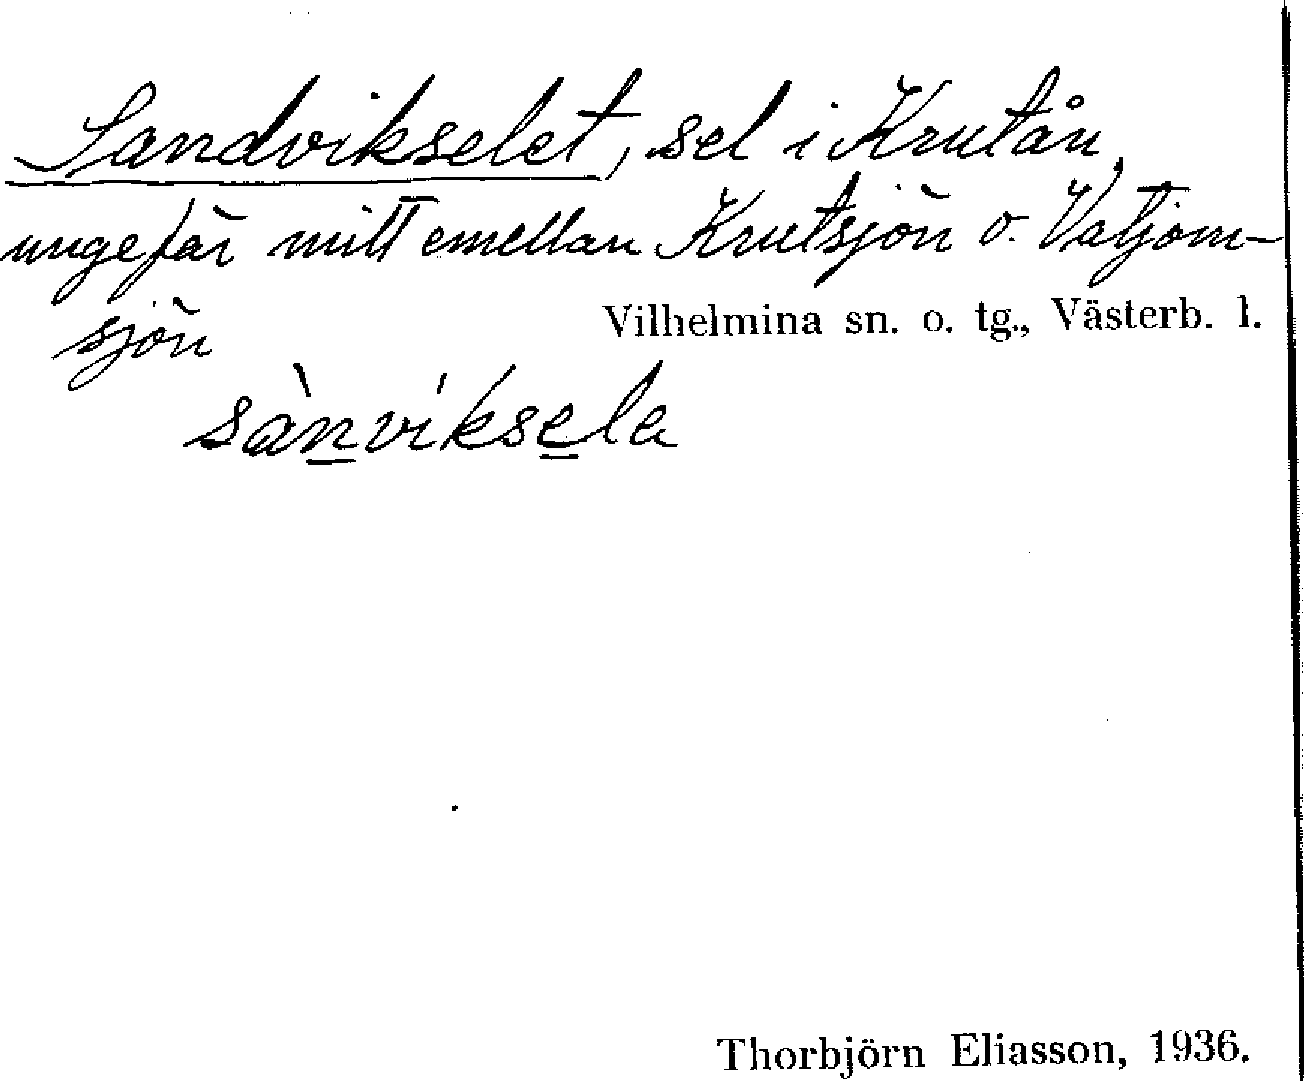 Sandvikselet, sel i Krutån,
ungefär mitt emellan Krutsjön o. Vatjom-
sjön
Vilhelmina sn. o. tg., Västerb. l.
sànvíksela
Thorbjörn Eliasson, 1936.